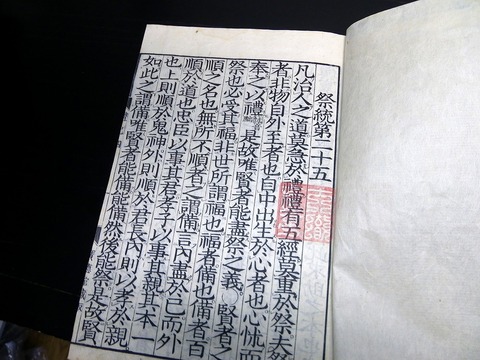 祭統第二十五
凡治人之道莫急於禮禮有五經莫重於祭夫祭
者非物自外至者也自中出生於心者也心怵而
奉之以禮是故唯賢者能盡祭之義○賢者之
祭也必受其福非世所謂福也福者備也備者百
順之名也無所不順者之謂備言内盡於己而外
順於道也忠臣以事其君孝子以事其親其本一
也上則順於鬼神外則順於君長内則以孝於親
如此之謂備唯賢者能備能備然後能祭是故賢